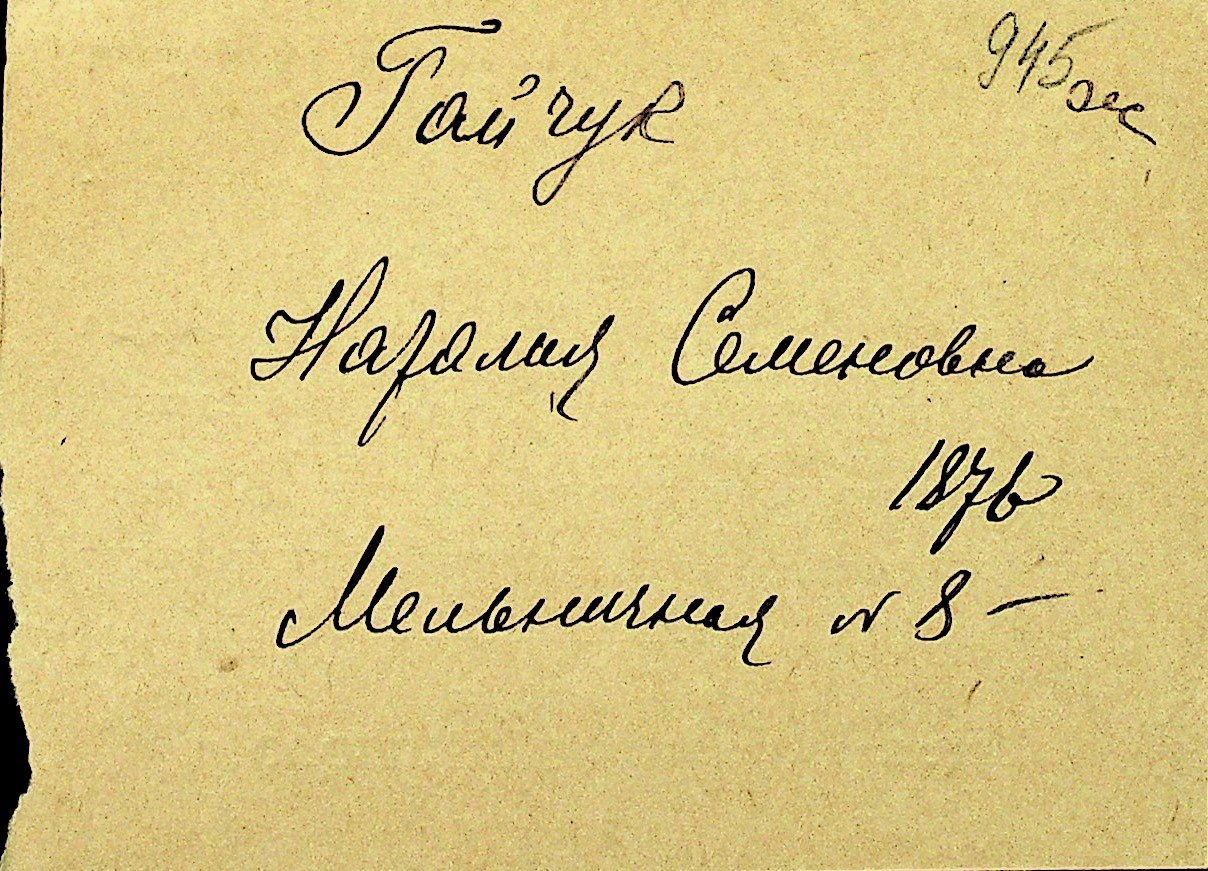 945 эс
Гайчук
Наталия Семеновна
1876
Мельничная № 8 –